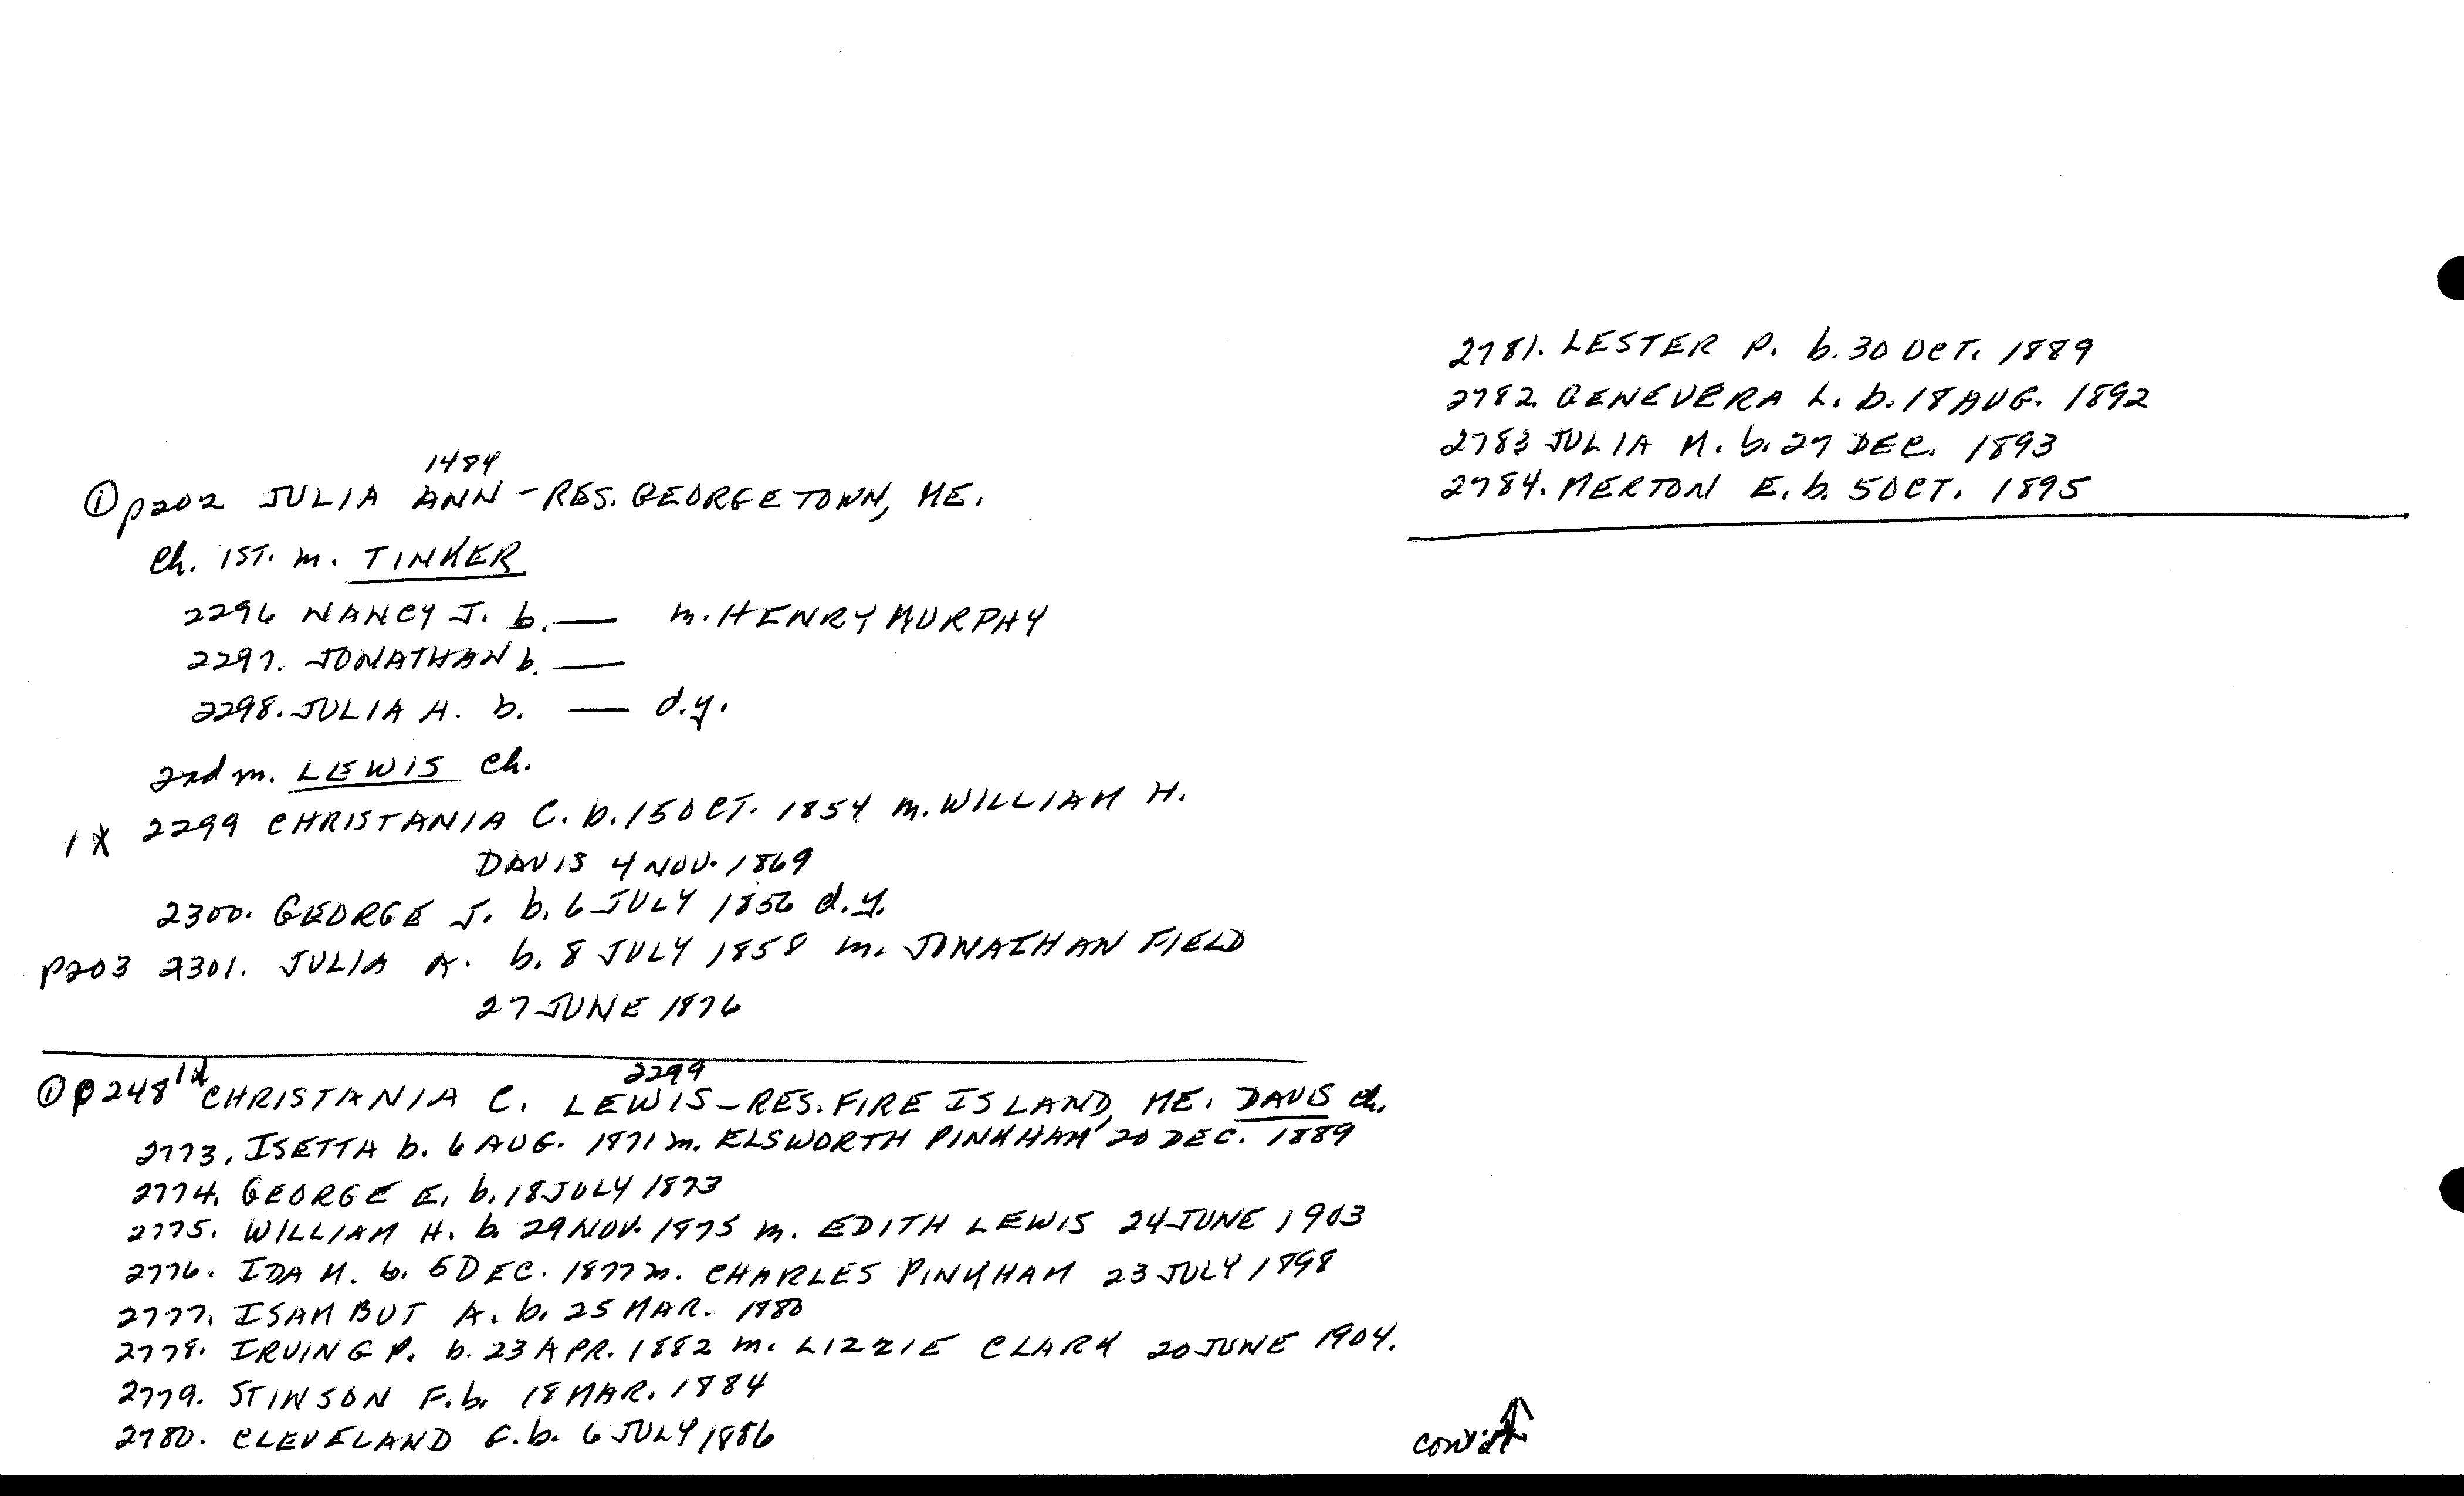 1484
① p202 JULIA ANN - RES. GEORGETOWN, ME.
Ch. 1ST. m. TINKER
2296 NANCY J. b. — m. HENRY MURPHY
2297. JONATHAN b. —
2298. JULIA H. b. — d.y.
2nd m. LEWIS Ch.
1X 2299 CHRISTANIA C. b. 15 OCT. 1854 m. WILLIAM H.
DAVIS 4 NOV. 1869
2300. GEORGE J. b. 6 JULY 1856 d.y.
P203 2301. JULIA A. b. 8 JULY 1858 m. JONATHAN FIELD
27 JUNE 1876
2299
① P248 1X CHRISTANIA C. LEWIS - RES. FIRE ISLAND, ME. DAVIS Ch.
2773. ISETTA b. 6 AUG. 1871 m. ELSWORTH PINKHAM 20 DEC. 1889
2774. GEORGE E. b. 18 JULY 1873
2775. WILLIAM H. b. 29 NOV. 1875 m. EDITH LEWIS 24 JUNE 1903
2776. IDA M. b. 5 DEC. 1877 m. CHARLES PINKHAM 23 JULY 1898
2777. ISAMBUT A. b. 25 MAR. 1880
2778. IRVING P. b. 23 APR. 1882 m. LIZZIE CLARK 20 JUNE 1904.
2779. STINSON F. b. 18 MAR. 1884
2780. CLEVELAND G. b. 6 JULY 1886
2781. LESTER P. b. 30 OCT. 1889
2782. GENEVERA L. b. 18 AUG. 1892
2783 JULIA M. b. 27 DEC. 1893
2784. MERTON E. b. 5 OCT. 1895